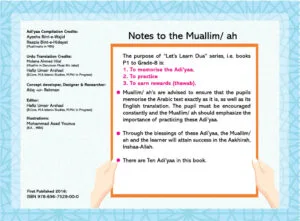 Ad'iyaa Compilation Credits:
Ayesha Bint-e-Majid
Baazia Bint-e-Hidayat
Urdu Translation Credits:
Molana Ahmed Hilal
Hafiz Umair Arshad
Concept developer, Designer & Researcher:
Atiq -ur- Rahman
Editor:
Hafiz Umair Arshad
Illustrations:
Mohammad Asad Younus
First Published 2016:
ISBN 978-696-7529-00-0
Notes to the Muallim/ ah
The purpose of "Let's Learn Dua" series, i.e. books
P1 to Grade-8 is:
1. To memorise the Ad'iyaa.
2. To practice
3. To earn rewards (thawab).
Muallim/ ah's are advised to ensure that the pupils
memorise the Arabic text exactly as it is, as well as its
English translation. The pupil must be encouraged
constantly and the Muallim/ ah should emphasize the
importance of practicing these Ad'iyaa.
Through the blessings of these Ad'iyaa, the Muallim/
ah and the learner will attain success in the Aakhirah,
Inshaa-Allah.
There are Ten Ad'iyaa in this book.